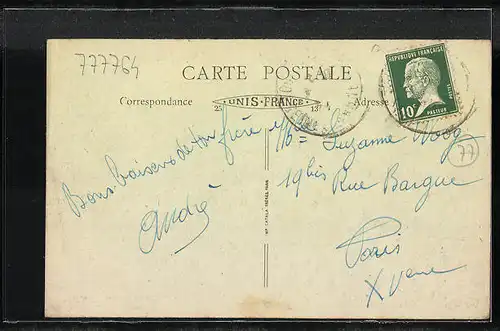 777764
CARTE POSTALE
Correspondance
UNIS-FRANCE
Adresse
REPUBLIQUE FRANÇAISE
10c
POSTES
PASTEUR
Bons baisers de ton frère
André
Suzanne
19 bis Rue Bargue
Paris
XVeme
77